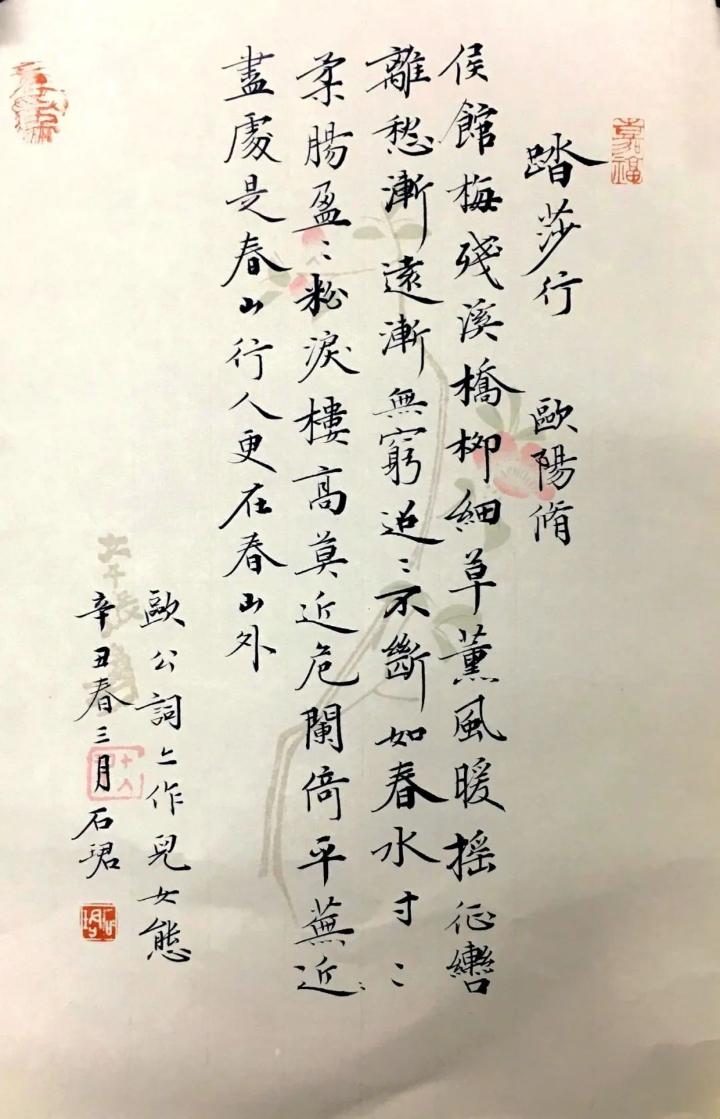 嘉福
踏莎行 歐陽脩
侯館梅殘溪橋柳細草薰風暖搖征轡
離愁漸遠漸無窮迢〻不斷如春水寸〻
柔腸盈〻粉淚樓高莫近危闌倚平蕪近〻
盡處是春山行人更在春山外
歐公詞亦作兒女態
辛丑春三月石珺